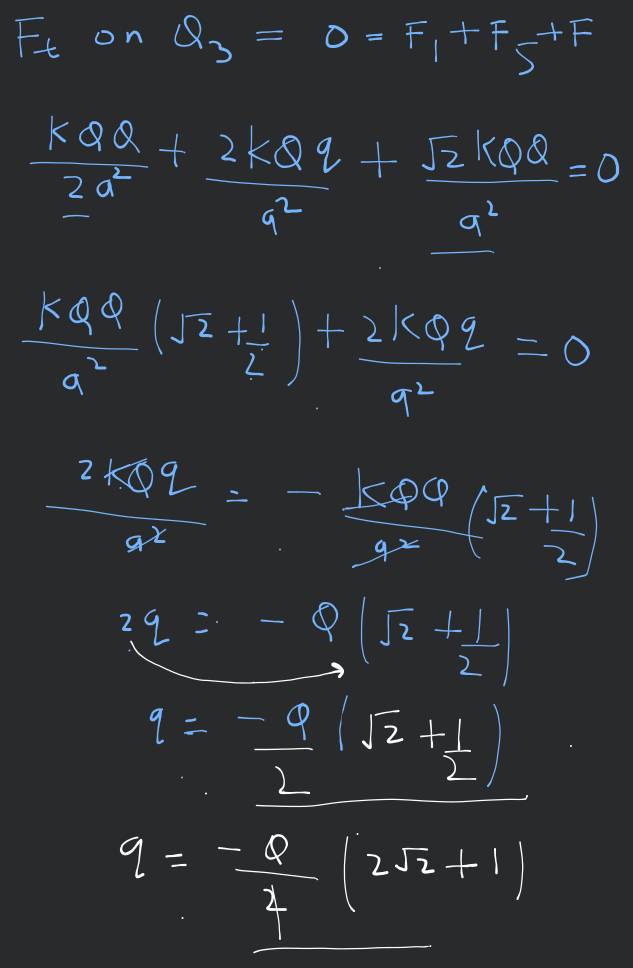 F_t on Q_3 = 0 = F_1 + F_5 + F
KQQ/2a² + 2KQq/a² + √2 KQQ/a² = 0
KQQ/a² (√2 + 1/2) + 2KQq/a² = 0
2KQq/a² = - KQQ/a² (√2 + 1/2)
2q = - Q (√2 + 1/2)
q = -Q/2 (√2 + 1/2)
q = -Q/4 (2√2 + 1)